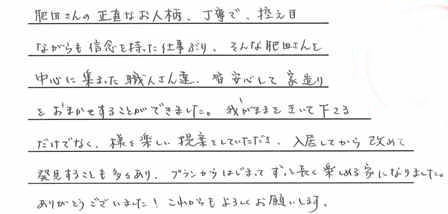 肥田さんの正直なお人柄、丁寧で、控え目
ながらも信念を持った仕事ぶり、そんな肥田さんを
中心に集まった職人さん達、皆安心して家造り
をおまかせすることができました。我がままを聞いて下さる
だけでなく、様々楽しい提案をしていただき、入居してから改めて
発見することも多々あり、プランからはじまってずっと長く楽しめる家になりました。
ありがとうございました！これからもよろしくお願いします。